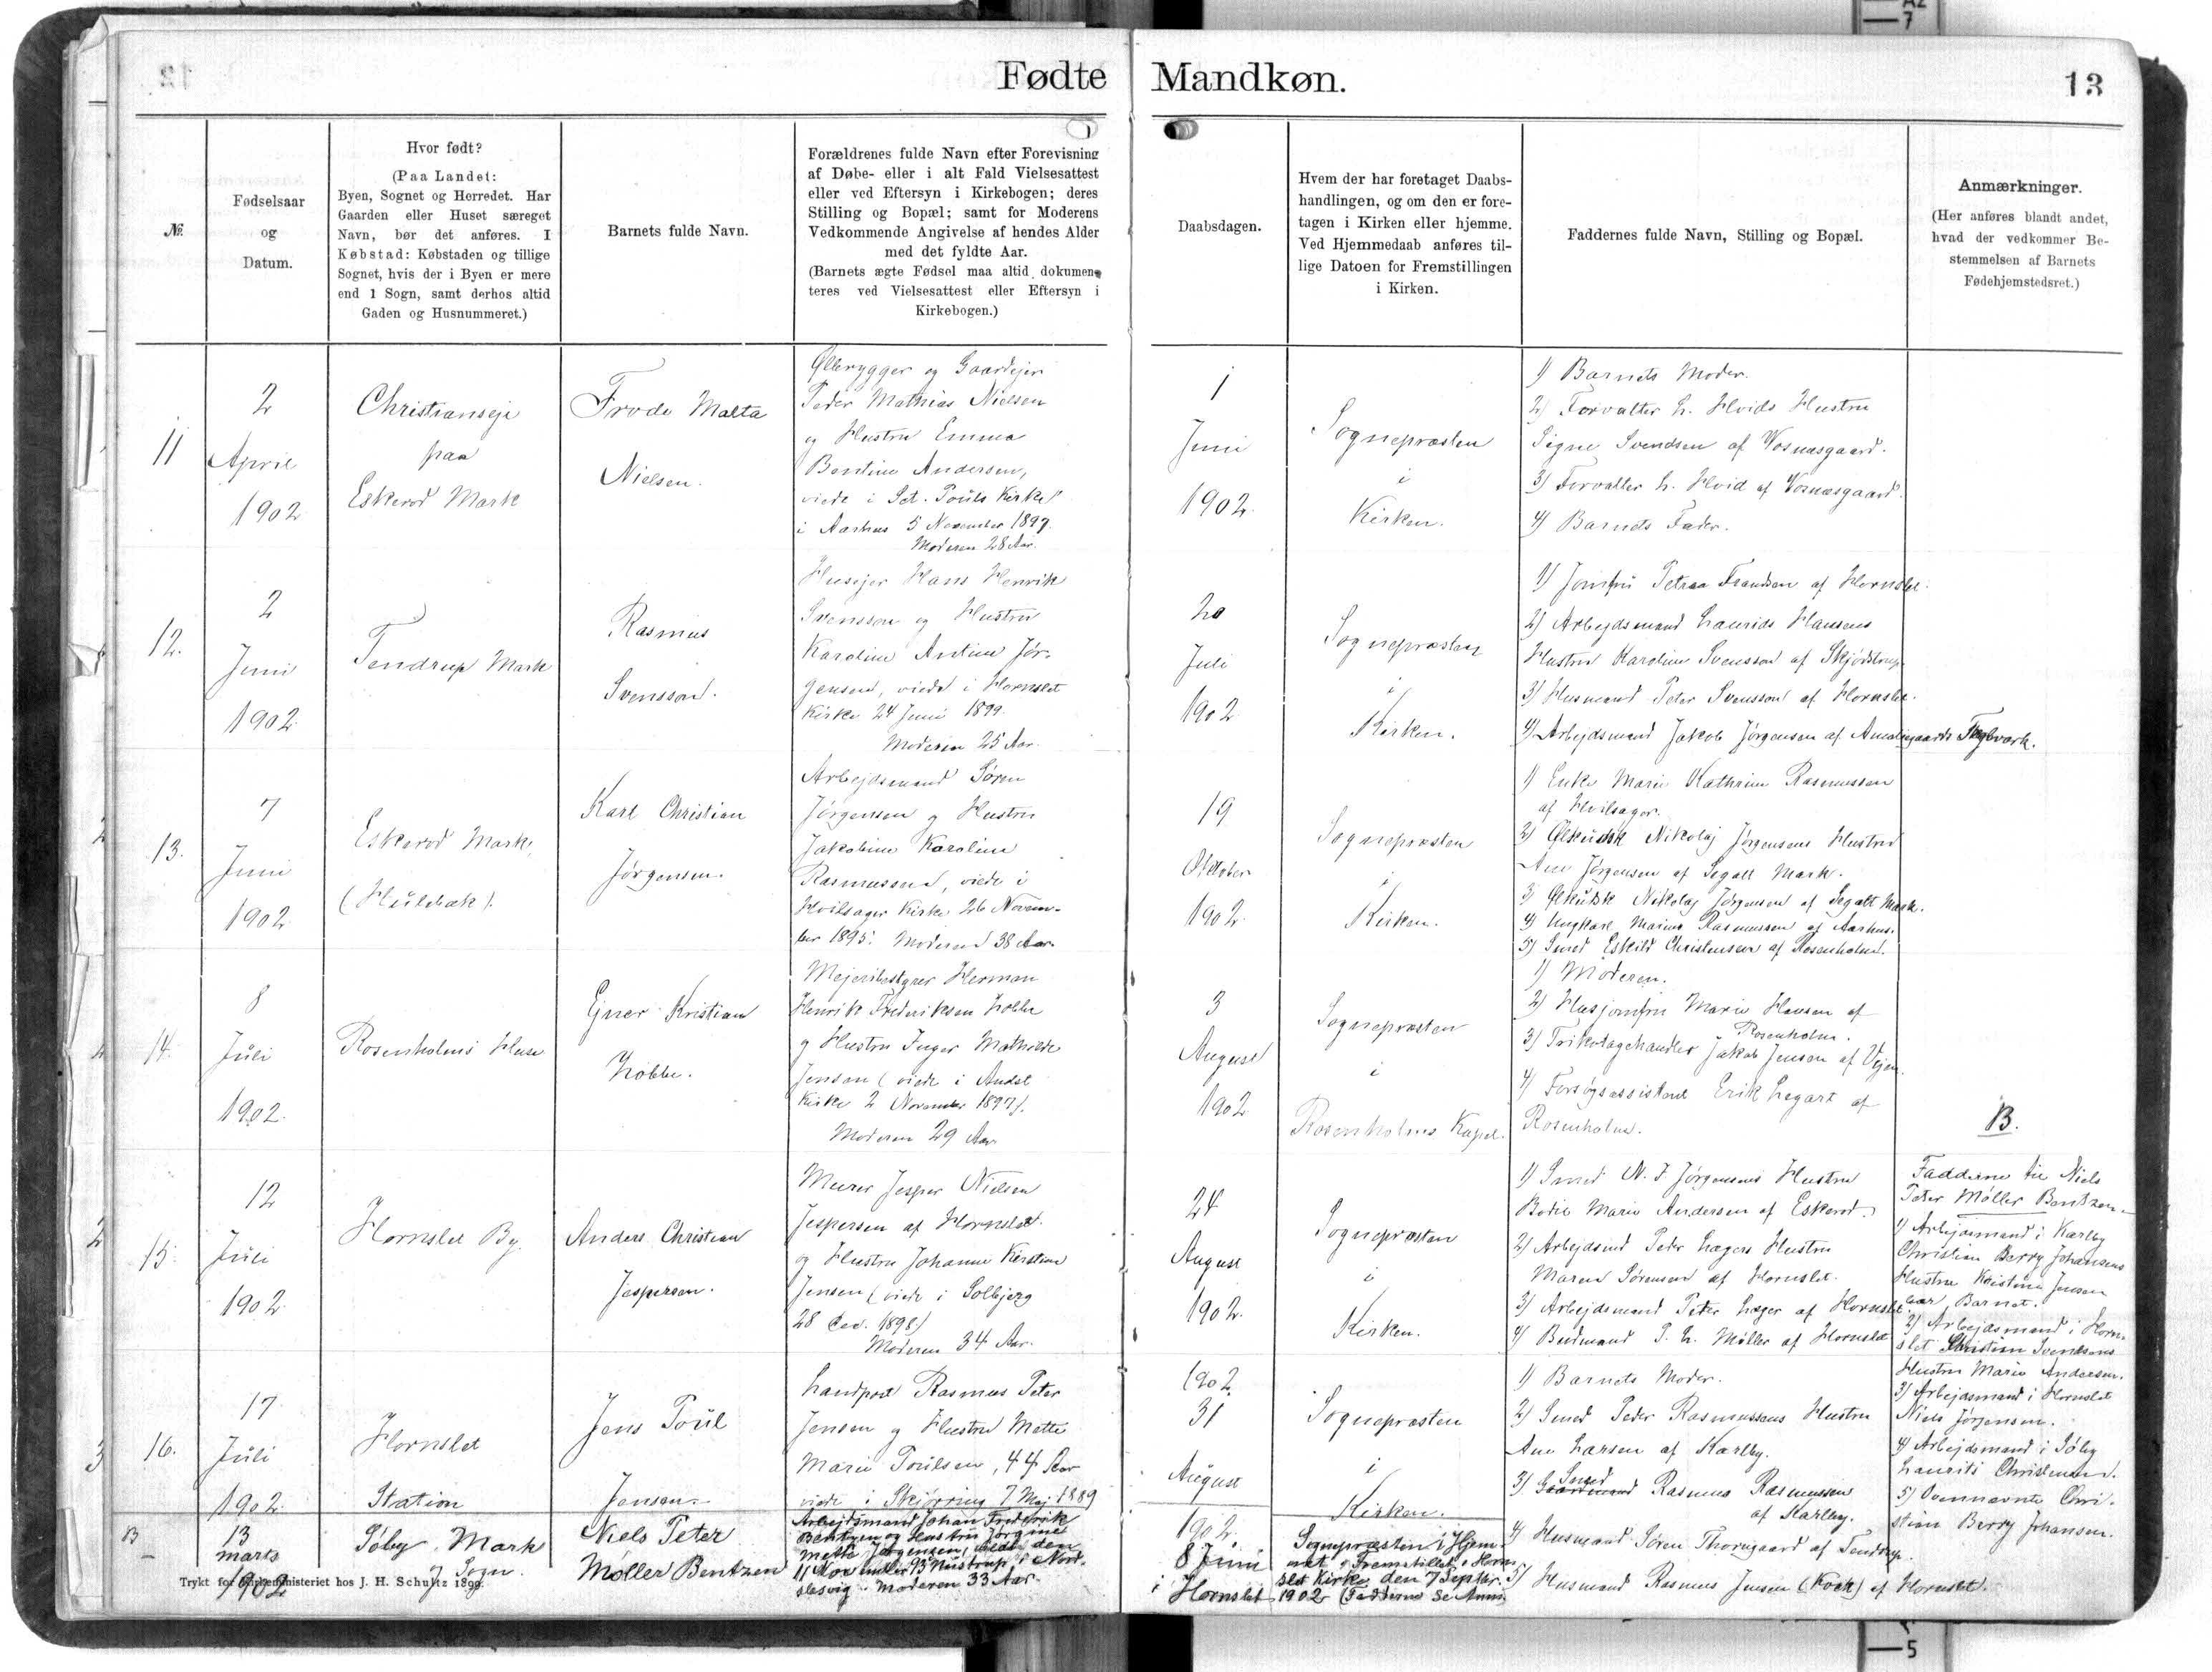 Fødte Mandkøn.
13
№.
Fødselsaar
og
Datum.
Hvor født?
(Paa Landet:
Byen, Sognet og Herredet. Har
Gaarden eller Huset særeget
Navn, bør det anføres. I
Købstad: Købstaden og tillige
Sognet, hvis der i Byen er mere
end 1 Sogn, samt derhos altid
Gaden og Husnummeret.)
Barnets fulde Navn.
Forældrenes fulde Navn efter Forevisning
af Døbe- eller i alt Fald Vielsesattest
eller ved Eftersyn i Kirkebogen; deres
Stilling og Bopæl; samt for Moderens
Vedkommende Angivelse af hendes Alder
med det fyldte Aar.
(Barnets ægte Fødsel maa altid dokumen-
teres ved Vielsesattest eller Eftersyn i
Kirkebogen.)
Daabsdagen.
Hvem der har foretaget Daabs-
handlingen, og om den er fore-
tagen i Kirken eller hjemme.
Ved Hjemmedaab anføres til-
lige Datoen for Fremstillingen
i Kirken.
Faddernes fulde Navn, Stilling og Bopæl.
Anmærkninger.
(Her anføres blandt andet,
hvad der vedkommer Be-
stemmelsen af Barnets
Fødehjemstedsret.)
11
2
April
1902
Christianseje
paa
Eskerod Mark
Frode Malta
Nielsen.
Ølbrygger og Gaardejer
Peder Mathias Nielsen
og Hustru Emma
Bentine Andersen,
viede i Sct. Pouls Kirke
i Aarhus 5 November 1897.
Moderen 28 Aar.
1
Juni
1902.
Sognepræsten
i
Kirken.
1) Barnets Moder.
2) Forvalter L. Hvids Hustru
Signe Svendsen af Vosnæsgaard.
3) Forvalter L. Hvid af Vosnæsgaard.
4) Barnets Fader.
12.
2
Juni
1902.
Tendrup Mark
Rasmus
Svensson.
Husejer Hans Henrik
Svensson og Hustru
Karoline Antine Jør-
gensen, viede i Hornslet
Kirke 24 Juni 1899.
Moderen 25 Aar.
20
Juli
1902
Sognepræsten
i
Kirken.
1) Jomfru Petrea Frandsen af Hornslet.
2) Arbejdsmand Laurids Hansens
Hustru Karoline Svensson af Skjødstrup.
3) Husmand Peter Svensson af Hornslet.
4) Arbejdsmand Jakob Jørgensen af Amaliegaards Teglværk.
13.
7
Juni
1902
Eskerod Mark,
(Hulebæk).
Karl Christian
Jørgensen.
Arbejdsmand Søren
Jørgensen og Hustru
Jakobine Karoline
Rasmussen, viede i
Hvilsager Kirke 26 Novem-
ber 1895. Moderen 38 Aar.
19
Oktober
1902
Sognepræsten
i
Kirken.
1) Enke Marie Kathrine Rasmussen
af Hvilsager.
2) Ølkudsk Nikolaj Jørgensens Hustru
Ane Jørgensen af Segalt Mark.
3) Ølkudsk Nikolaj Jørgensen af Segalt Mark.
4) Ungkarl Marius Rasmussen af Aarhus.
5) Smed Eskild Christensen af Rosenholm.
14.
8
Juli
1902.
Rosenholms Huse
Ejner Kristian
Lobbe.
Mejeribestyrer Herman
Henrik Frederiksen Lobbe
og Hustru Inger Mathilde
Jensen (viede i Andst
Kirke 2 November 1897).
Moderen 29 Aar
3
August
1902
Sognepræsten
i
Rosenholms Kapel.
1) Moderen.
2) Husjomfru Marie Hansen af
Rosenholm.
3) Trikotagehandler Jakob Jensen af Vejen.
4) Forsøgsassistent Erik Legart af
Rosenholm.
15.
12
Juli
1902
Hornslet By.
Anders Christian
Jespersen.
Murer Jesper Nielsen
Jespersen af Hornslet.
og Hustru Johanne Kirstine
Jensen (viede i Solbjerg
28 Dec. 1898)
Moderen 34 Aar.
24
August
1902.
Sognepræsten
i
Kirken.
1) Smed N. J. Jørgensens Hustru
Bodil Marie Andersen af Eskerod.
2) Arbejdsmd Peder Lægers Hustru
Maren Sørensen af Hornslet.
3) Arbejdsmand Peter Læger af Hornslet
4) Budmand P. L. Møller af Hornslet
16.
17
Juli
1902.
Hornslet
Station
Jens Poul
Jensen.
Landpost Rasmus Peter
Jensen og Hustru Mette
Marie Poulsen, 44 Aar
viede i Skjørring 7 Maj 1889
1902.
31
August
1902.
Sognepræsten
i
Kirken.
1) Barnets Moder.
2) Smed Peder Rasmussens Hustru
Ane Larsen af Karlby.
3) Smed Rasmus Rasmussen
af Karlby.
4) Husmand Søren Thorugaard af Tendrup.
5) Husmand Rasmus Jensen (Koch) af Hornslet.
B
13
marts
1902
Søby Mark
og Sogn.
Niels Peter
Møller Bentzen
Arbejdsmand Johan Frederik
Bentzen og Hustru Jørgine
Mette Jørgensen, viede den
11 November 95 i Nustrup i Nord-
slesvig. Moderen 33 Aar.
8 Juni
i
Hornslet
Sognepræsten i Hjem-
met. Fremstillet i Horns-
let Kirke den 7 Septbr.
1902 (Fadderne se Anm.
B.
Fadderne til Niels
Peter Møller Bentzen.
1) Arbejdsmand i Karlby
Christian Berry Johansens
Hustru Kristine Jensen
bar Barnet.
2) Arbejdsmand i Horns-
let Christian Svendsens
Hustru Marie Andersen.
3) Arbejdsmand i Hornslet
Niels Jørgensen.
4) Arbejdsmand i Søby
Laurits Christensen.
5) Ovennævnte Chri-
stian Berry Johansen.
Trykt for Kirkeministeriet hos J. H. Schultz 1899.